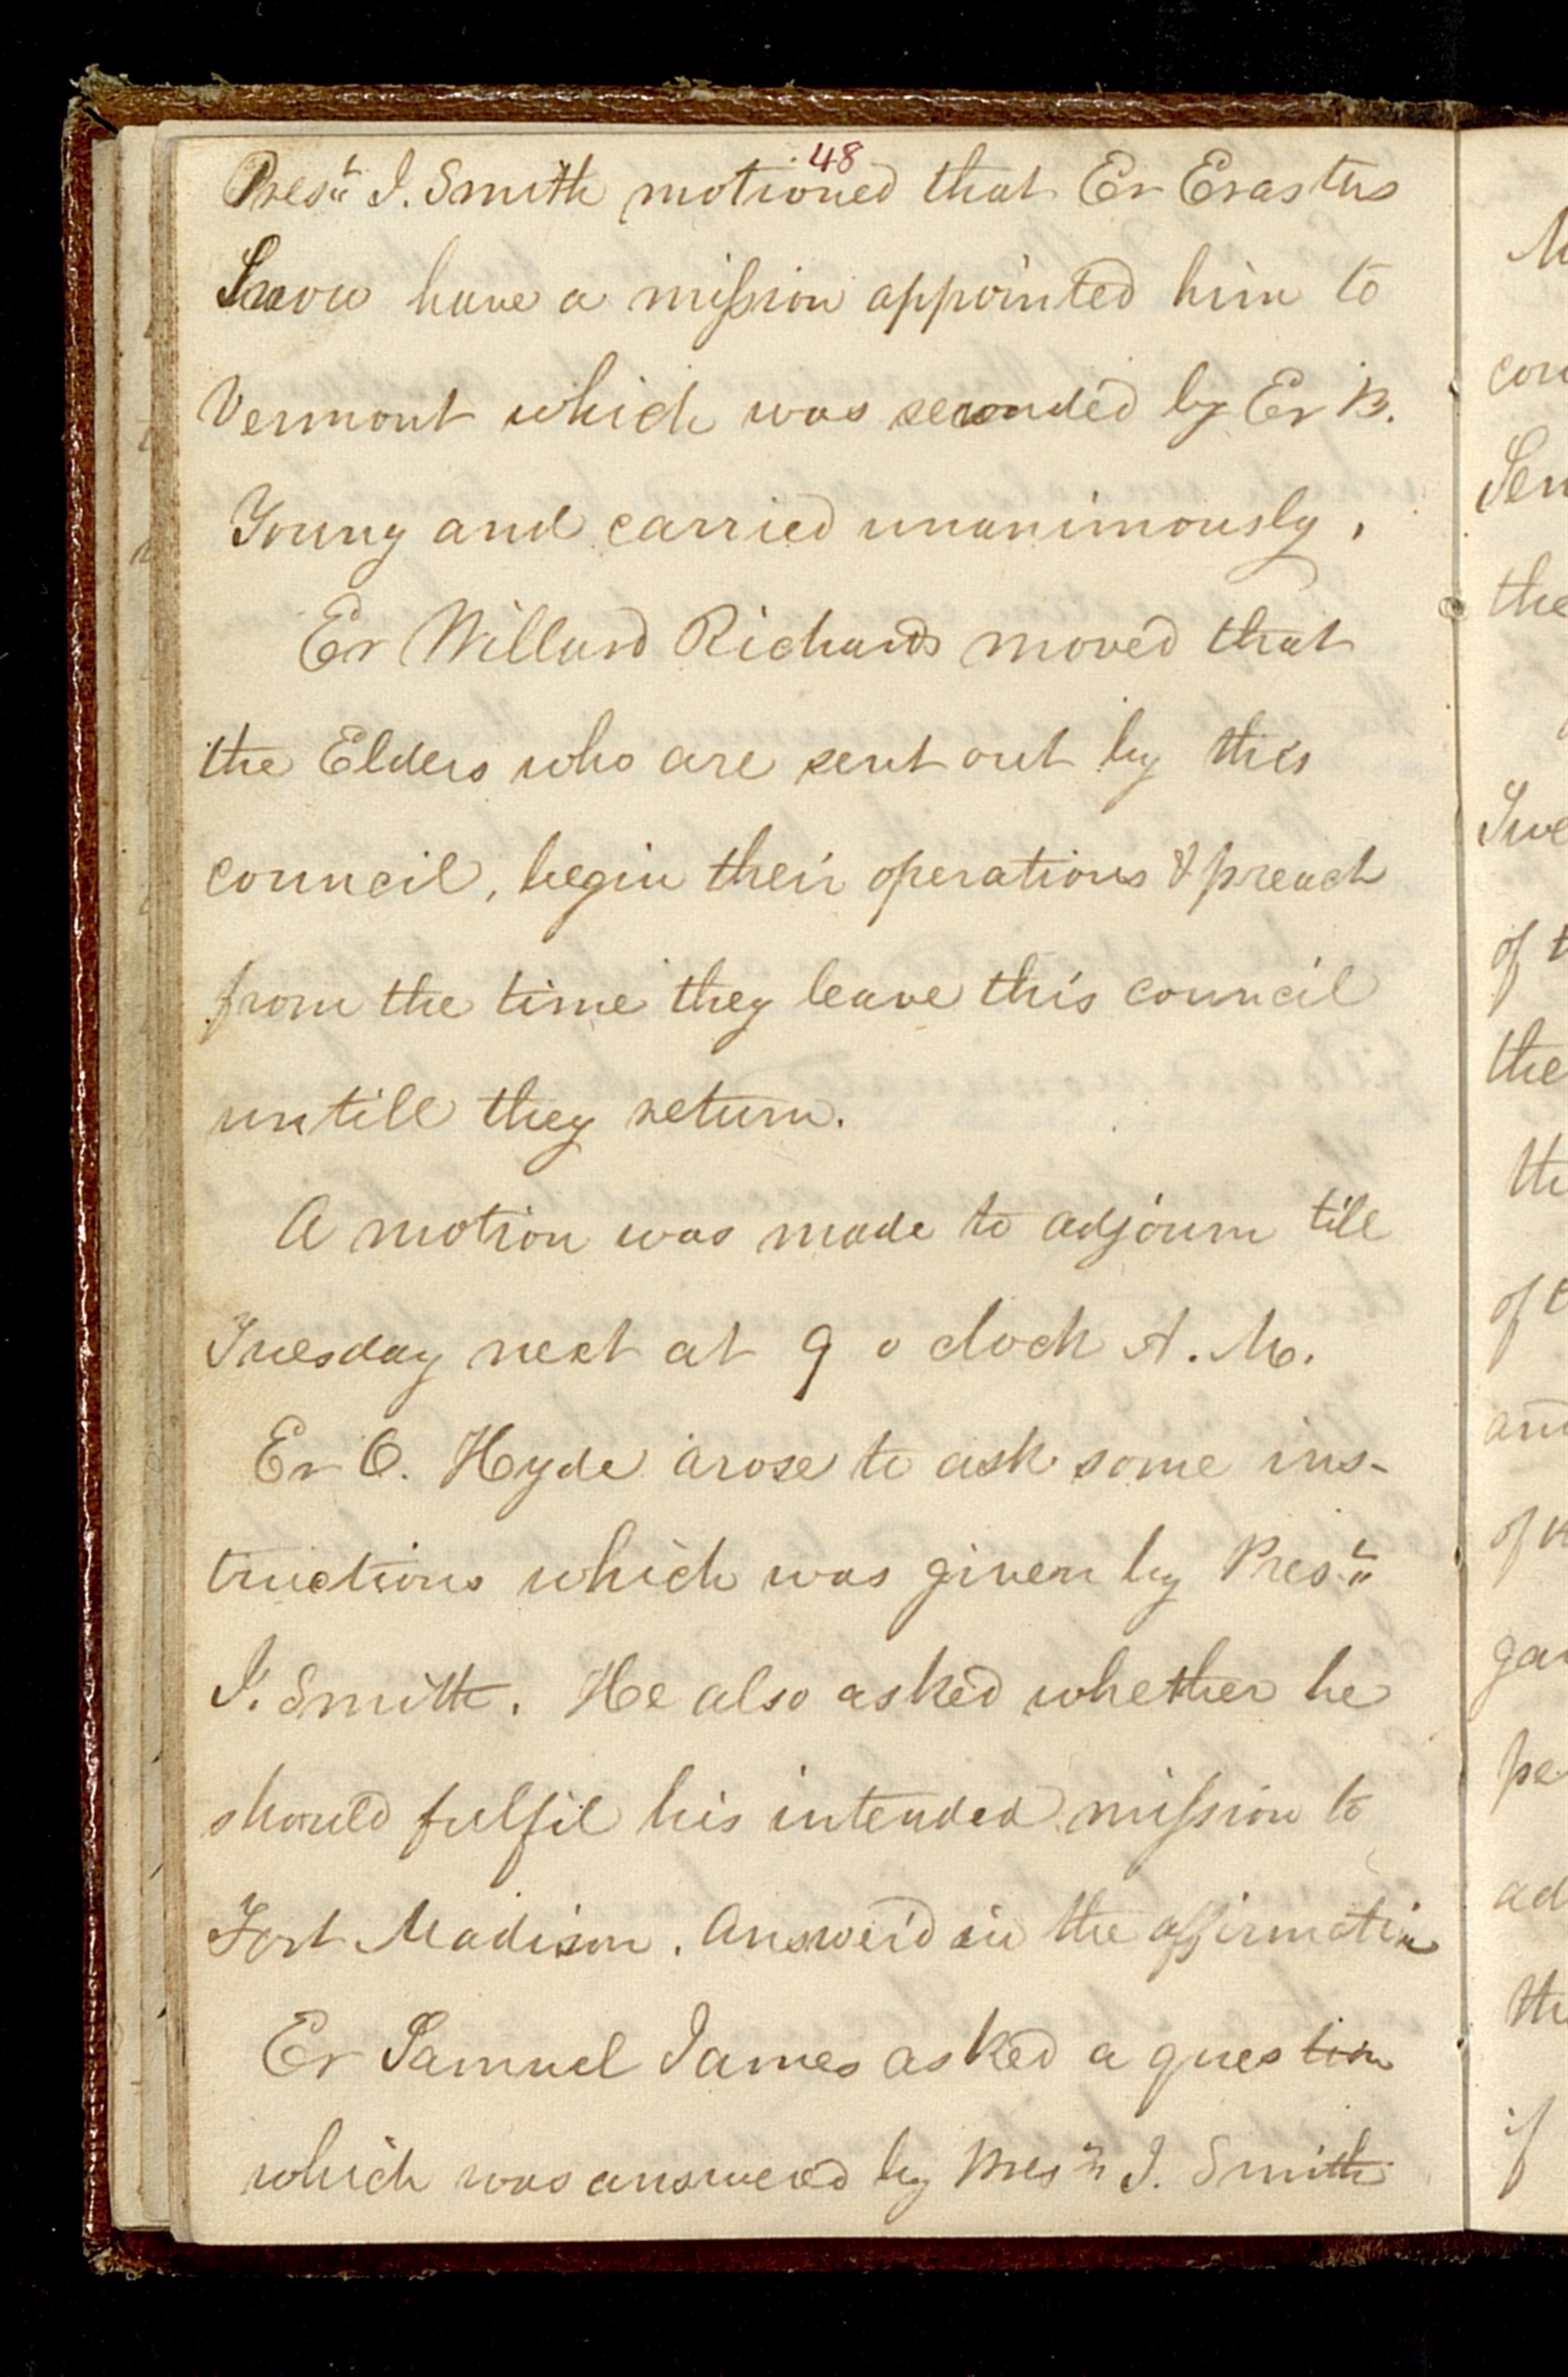 48
Pres.t J. Smith motioned that Er Erastus
Snow have a mission appointed him to
Vermont which was seconded by Er B.
Young and carried unanimously.
Er Willard Richards moved that
the Elders who are sent out by this
council, begin their operations & preach
from the time they leave this council
untill they return.
A motion was made to adjourn till
Tuesday next at 9 o clock A. M.
Er O. Hyde arose to ask some ins-
tructions which was given by Pres.t
J. Smith. He also asked whether he
should fulfil his intended mission to
Fort Madison. Answerd in the affirmative
Er Samuel James asked a question
which was answered by Pres.t J. Smith
M
con
Sen
the
Swe
of t
the
th
of t
and
of
gar
pe
ad
th
if